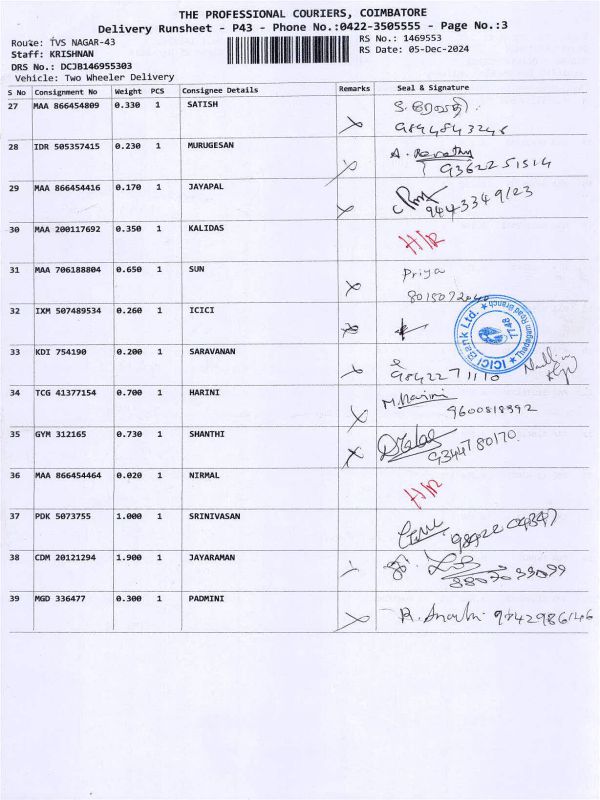 THE PROFESSIONAL COURIERS, COIMBATORE
Delivery Runsheet - P43 - Phone No.:0422-3505555 - Page No.:3
Route: TVS NAGAR-43 RS No.: 1469553
Staff: KRISHNAN RS Date: 05-Dec-2024
DRS No.: DCJB146955303
Vehicle: Two Wheeler Delivery
S No Consignment No Weight PCS Consignee Details Remarks Seal & Signature
27 MAA 866454809 0.330 1 SATISH
9894843248
28 IDR 505357415 0.230 1 MURUGESAN A. Revathy
9362251514
29 MAA 866454416 0.170 1 JAYAPAL
9443349123
30 MAA 200117692 0.350 1 KALIDAS
31 MAA 706188804 0.650 1 SUN Priya
32 IXM 507489534 0.260 1 ICICI
ICICI Bank Ltd. ★ Thadagam Road Branch ★ 7748
33 KDI 754190 0.200 1 SARAVANAN
9842271110
34 TCG 41377154 0.700 1 HARINI M. Harini
9600818992
35 GYM 312165 0.730 1 SHANTHI
9344780170
36 MAA 866454464 0.020 1 NIRMAL
37 PDK 5073755 1.000 1 SRINIVASAN
38 CDM 20121294 1.900 1 JAYARAMAN
39 MGD 336477 0.300 1 PADMINI